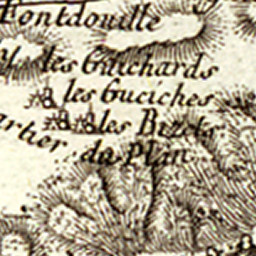 Fontdouille
les Guichards
les Guciches
les Bizets
artier du Plan